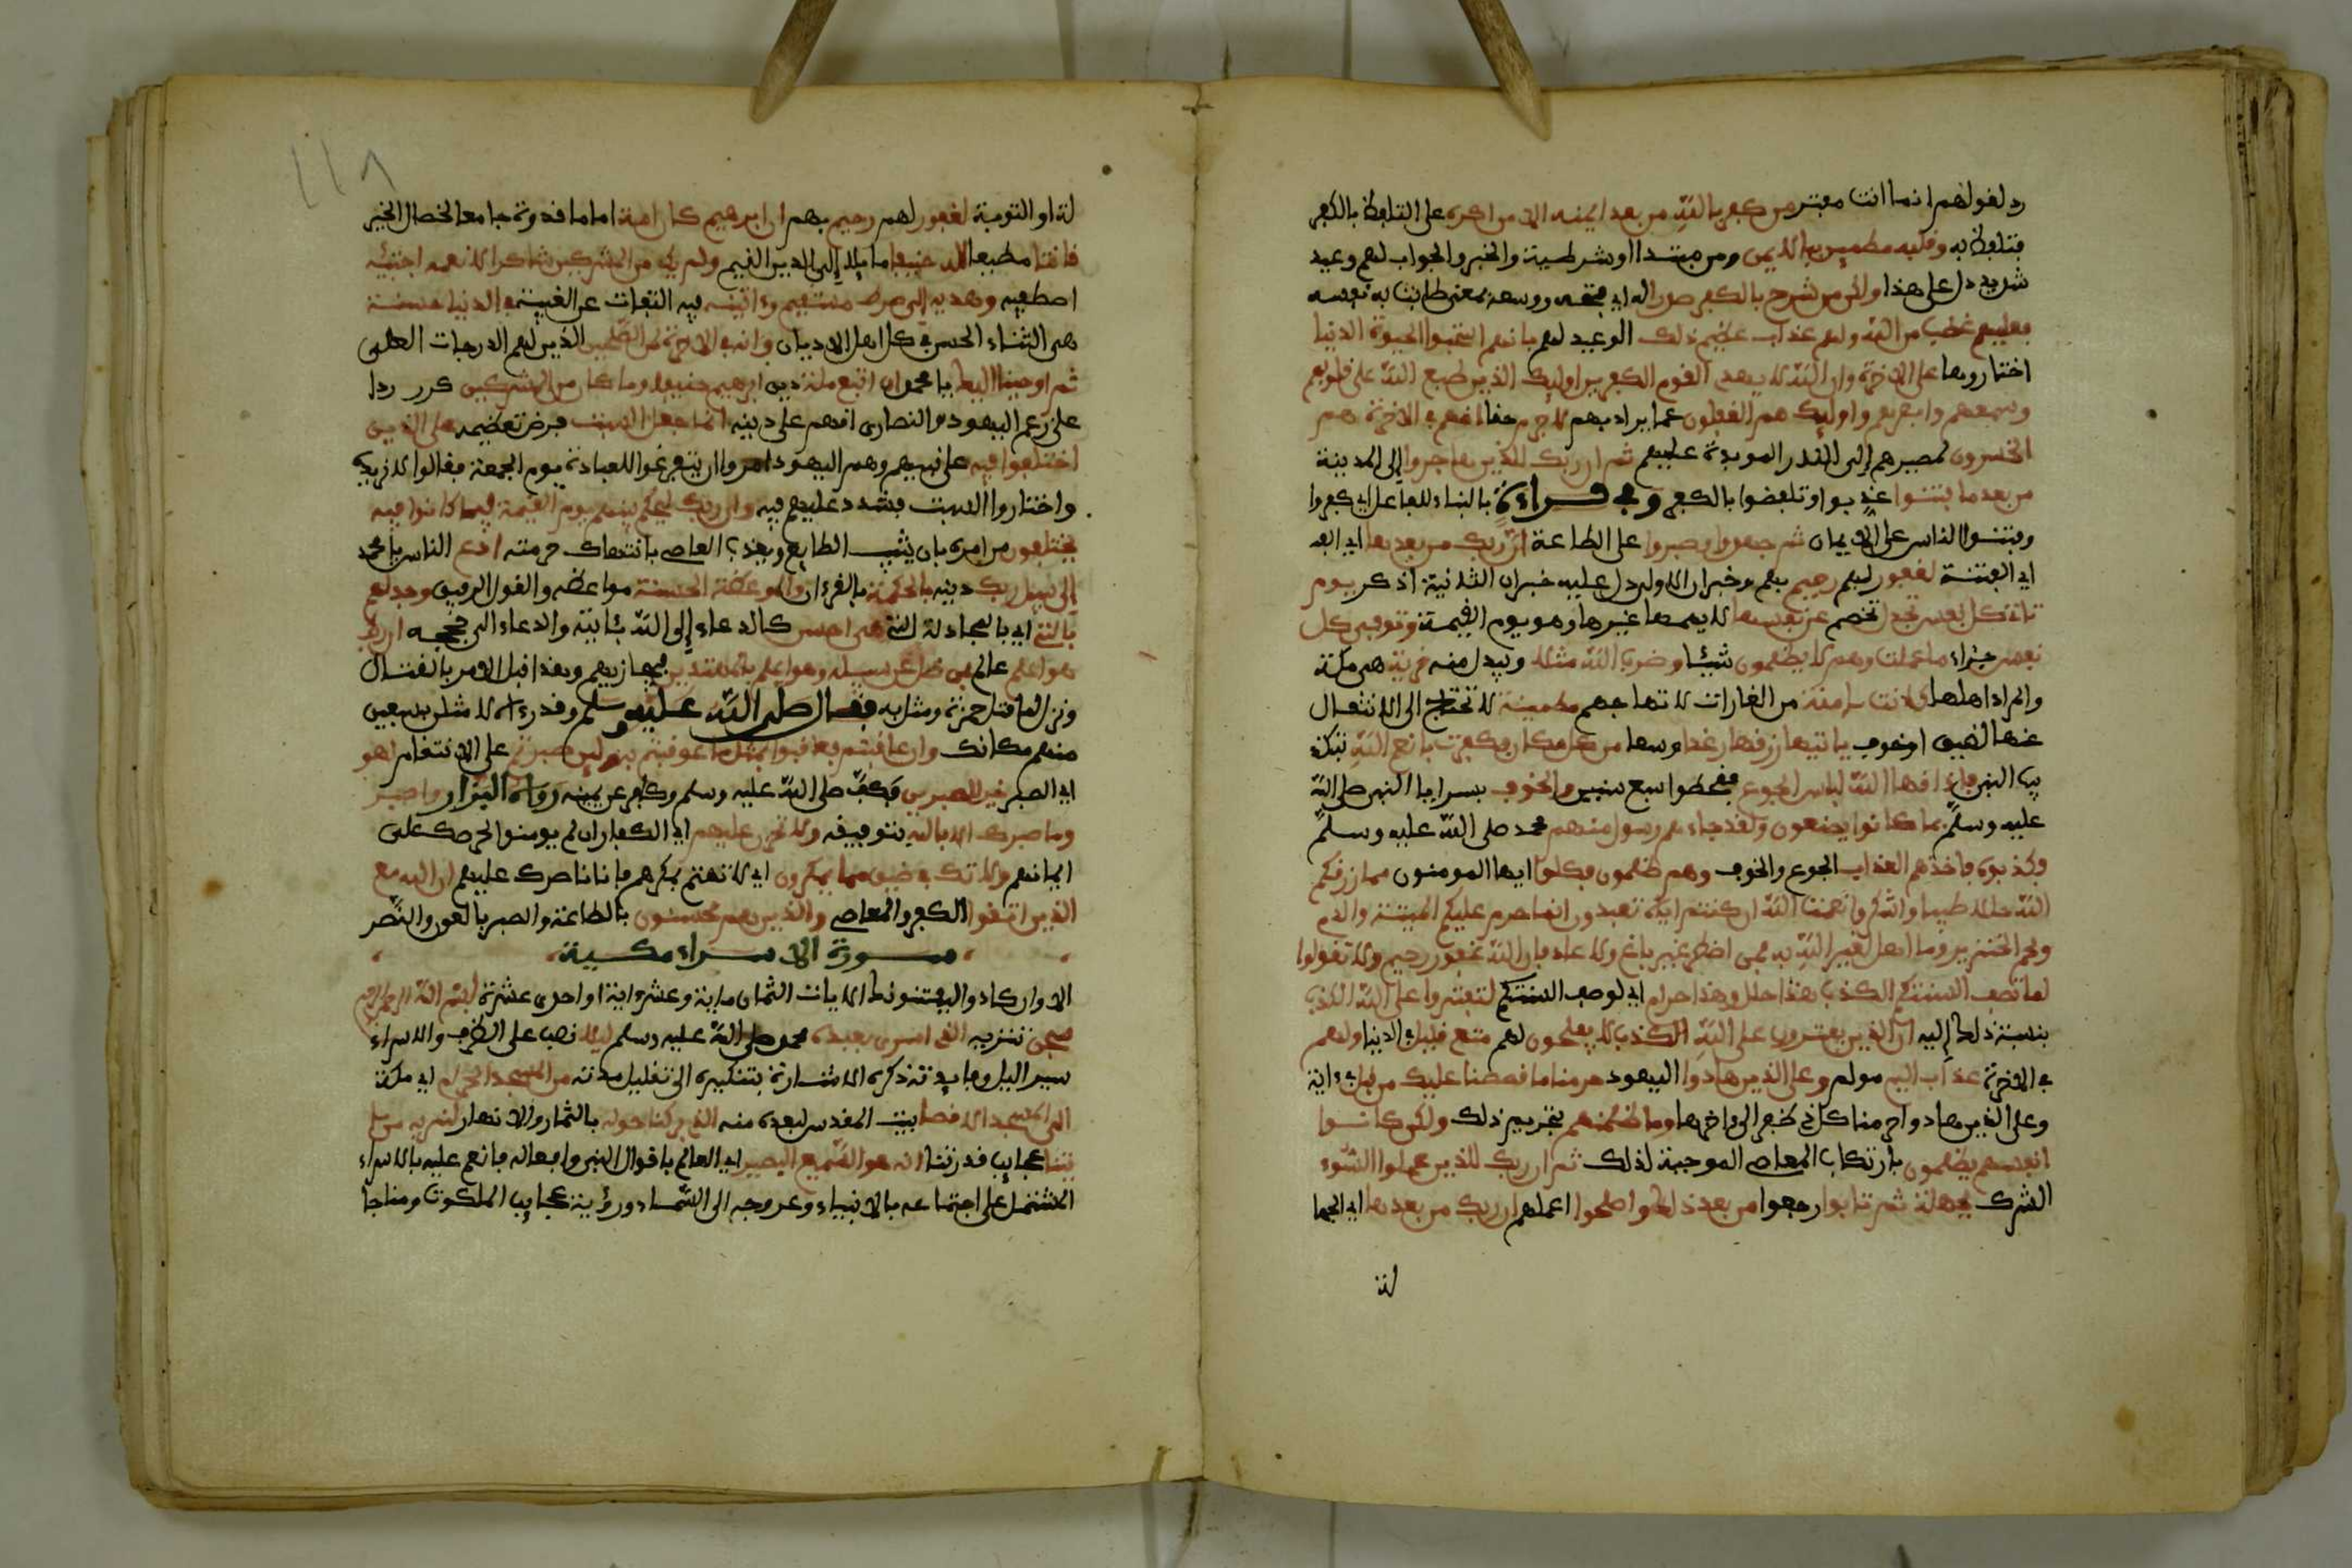 رد لقولهم انما انت مفتر من كفر بالله من بعد ايمنه الا من اكره على التلفظ بالكفر
فتلفظ به وقلبه مطمين بالايمن ومن مبتدا او شرطية والخبر والجواب لهم وعيد
شديد دل على هذا ولكن من شرح بالكفر صدرا له اي فتحه ووسعه بمعنى طابت به نفسه
فعليهم غضب من الله ولهم عذاب عظيم ذلك الوعيد لهم بانهم استحبوا الحيوة الدنيا
اختاروها على الاخرة وان الله لا يهدى القوم الكفرين اوليك الذين طبع الله على قلوبهم
وسمعهم وابصرهم واوليك هم الغفلون عما يراد بهم لا جرم حقا انهم في الاخرة هم
الخسرون لمصيرهم الى النار الموبدة عليهم ثم ان ربك للذين هاجروا الى المدينة
من بعد ما فتنوا عذبوا وتلفضوا بالكفر وفي قراءة بالبناء للفاعل اي كفروا
وفتنوا الناس على الايمان ثم جهدوا وصبروا على الطاعة ان ربك من بعدها اي الفـ
اي الفتنة لغفور لهم رحيم بهم وخبر ان الاولى دل عليه خبر ان الثانية اذكر يوم
تاتي كل نفس تجدل تخصم عن نفسها لا يهمها غيرها وهو يوم القيمة وتوفى كل
نفس جزاء ما عملت وهم لا يظلمون شيئا وضرب الله مثلا ويبدل منه قرية هي مكة
والمراد اهلها كانت ءامنة من الغارات لا تهاج مطمينة لا تحتاج الى الانتقال
عنها لضيق او خوف ياتيها رزقها رغدا واسعا من كل مكان فكفرت بانعم الله بتكذ
يب النبي فاذاقها الله لباس الجوع فقحطوا سبع سنين والخوف بسرايا النبي صلى الله
عليه وسلم بما كانوا يصنعون ولقد جاءهم رسول منهم محمد صلى الله عليه وسلم
فكذبوه فاخذهم العذاب الجوع والخوف وهم ظلمون فكلوا ايها المومنون مما رزقكم
الله حللا طيبا واشكروا نعمت الله ان كنتم اياه تعبدون انما حرم عليكم الميتة والدم
ولحم الخنزير وما اهل لغير الله به فمن اضطر غير باغ ولا عاد فان الله غفور رحيم ولا تقولوا
لما تصف السنتكم الكذب هذا حلل وهذا حرام اي لوصف السنتكم لتفتروا على الله الكذب
بنسبة ذلك اليه ان الذين يفترون على الله الكذب لا يفلحون لهم متع قليل في الدنيا ولهم
في الاخرة عذاب اليم مولم وعلى الذين هادوا اليهود حرمنا ما قصصنا عليك من قبل في ءاية
وعلى الذين هادوا حرمنا كل ذي ظفر الى ءاخرها وما ظلمنهم بتحريم ذلك ولكن كانوا
انفسهم يظلمون بارتكاب المعاصي الموجبة لذلك ثم ان ربك للذين عملوا السوء
الشرك بجهلة ثم تابوا رجعوا من بعد ذلك واصلحوا اعملهم ان ربك من بعدها اي الجها
لة
١١٨
لة او التوبة لغفور لهم رحيم بهم ان ابرهيم كان امة اماما قدوة جامعا لخصال الخير
قانتا مطيعا لله حنيفا مايلا الى الدين القيم ولم يك من المشركين شاكرا لانعمه اجتبيه
اصطفيه وهديه الى صرط مستقيم وءاتينه فيه التفات عن الغيبة في الدنيا حسنة
هي الثناء الحسن في كل اهل الاديان وانه في الاخرة لمن الصلحين الذين لهم الدرجات العلى
ثم اوحينا اليك يا محمد ان اتبع ملة دين ابرهيم حنيفا وما كان من المشركين كرر ردا
على زعم اليهود والنصارى انهم على دينه انما جعل السبت فرض تعظيمه على الذين
اختلفوا فيه على نبيهم وهم اليهود امروا ان يتفرغوا للعبادة يوم الجمعة فقالوا لا نريده
واختاروا السبت فشدد عليهم فيه وان ربك ليحكم بينهم يوم القيمة فيما كانوا فيه
يختلفون من امره بان يثيب الطايع ويعذب العاصي بانتهاك حرمته ادع الناس يا محمد
الى سبيل ربك دينه بالحكمة بالقرءان والموعظة الحسنة مواعظه والقول الرقيق وجدلهم
بالتي اي بالمجادلة التي هي احسن كالدعاء الى الله بئايته والدعاء الى حججه ان ربك
هو اعلم عالم بمن ضل عن سبيله وهو اعلم بالمهتدين فيجازيهم وهذا قبل الامر بالقتال
ونزل لما قتل حمزة ومثل به فقال صلى الله عليه وسلم وقد رءاه لامثلن بسبعين
منهم مكانك وان عاقبتم فعاقبوا بمثل ما عوقبتم به ولين صبرتم على الانتقام لهو
اي الصبر خير للصبرين فكف صلى الله عليه وسلم وكفر عن يمينه رواه البزار واصبر
وما صبرك الا بالله بتوفيقه ولا تحزن عليهم اي الكفار ان لم يومنوا لحرصك على
ايمانهم ولا تك في ضيق مما يمكرون اي لا تهتم بمكرهم فانا ناصرك عليهم ان الله مع
الذين اتقوا الكفر والمعاصي والذين هم محسنون بالطاعة والصبر بالعون والنصر
سورة الاسراء مكية
الا وان كادوا ليفتنونك الايات الثمان ماية وعشر ءاية او احدى عشرة بسم الله الرحمن الرحيم
سبحن تنزيه الذي اسرى بعبده محمد صلى الله عليه وسلم ليلا نصب على الظرف والاسراء
سير الليل وفايدة ذكره الاشارة بتنكيره الى تقليل مدته من المسجد الحرام اي مكة
الى المسجد الاقصا بيت المقدس لبعده منه الذي بركنا حوله بالثمار والانهار لنريه من ءا
يتنا عجايب قدرتنا انه هو السميع البصير اي العالم باقوال النبي وافعاله فانعم عليه بالاسراء
المشتمل على اجتماعه بالانبياء وعروجه الى السماء ورؤية عجايب الملكوت ومناجا